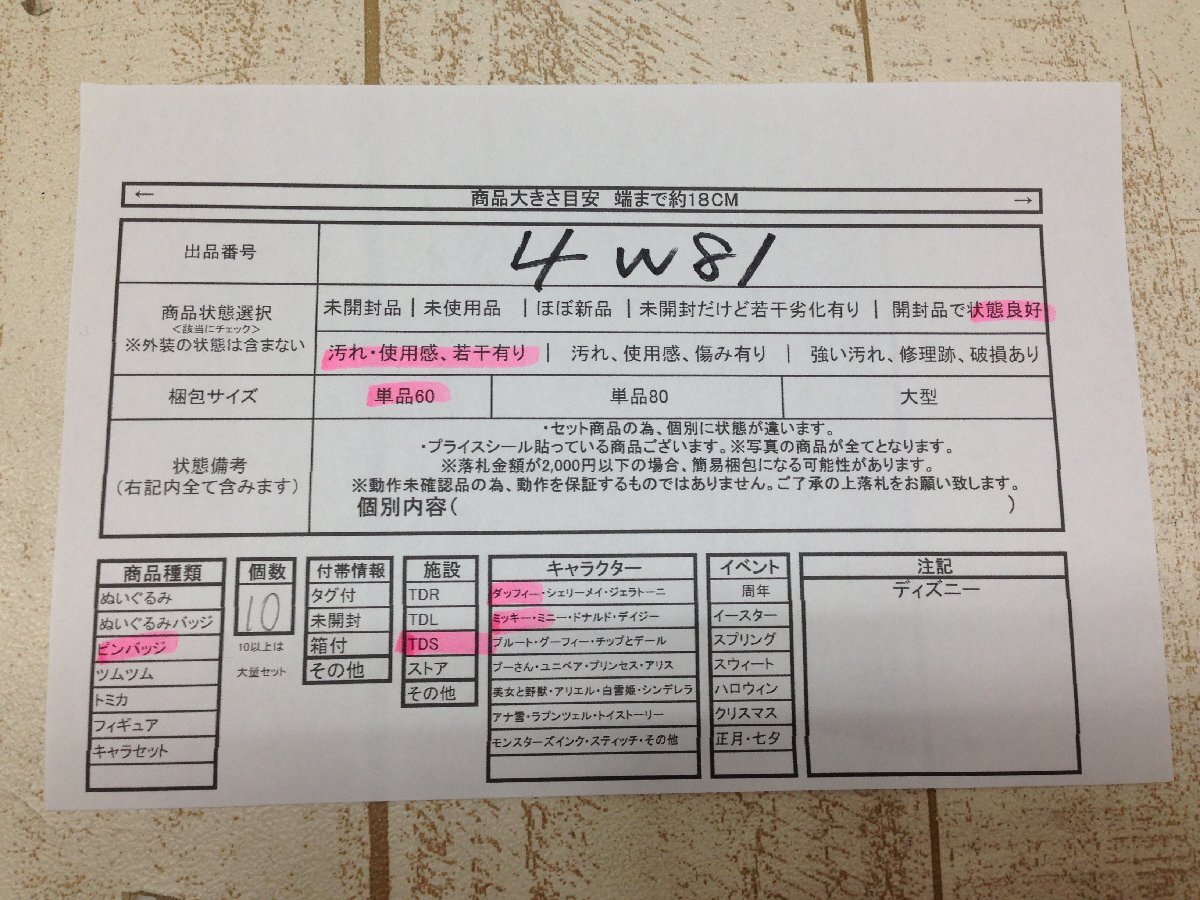 ← 商品大きさ目安 端まで約18CM →
出品番号 4W81
商品状態選択
<該当にチェック>
※外装の状態は含まない
未開封品 | 未使用品 | ほぼ新品 | 未開封だけど若干劣化有り | 開封品で状態良好
汚れ・使用感、若干有り | 汚れ、使用感、傷み有り | 強い汚れ、修理跡、破損あり
梱包サイズ 単品60 単品80 大型
状態備考
(右記内全て含みます)
・セット商品の為、個別に状態が違います。
・プライスシール貼っている商品ございます。※写真の商品が全てとなります。
※落札金額が2,000円以下の場合、簡易梱包になる可能性があります。
※動作未確認品の為、動作を保証するものではありません。ご了承の上落札をお願い致します。
個別内容( )
商品種類
ぬいぐるみ
ぬいぐるみバッジ
ピンバッジ
ツムツム
トミカ
フィギュア
キャラセット
個数
10
10以上は
大量セット
付帯情報
タグ付
未開封
箱付
その他
施設
TDR
TDL
TDS
ストア
その他
キャラクター
ダッフィー・シェリーメイ・ジェラトーニ
ミッキー・ミニー・ドナルド・デイジー
プルート・グーフィー・チップとデール
プーさん・ユニベア・プリンセス・アリス
美女と野獣・アリエル・白雪姫・シンデレラ
アナ雪・ラプンツェル・トイストーリー
モンスターズインク・スティッチ・その他
イベント
周年
イースター
スプリング
スウィート
ハロウィン
クリスマス
正月・七夕
注記
ディズニー